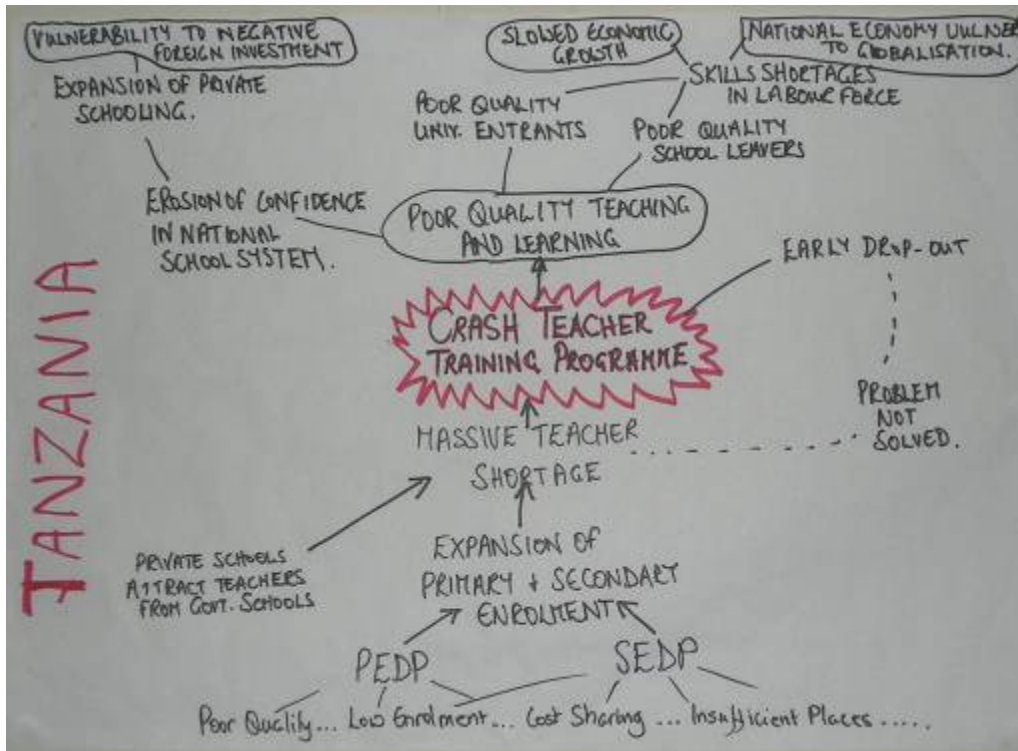 VULNERABILITY TO NEGATIVE
FOREIGN INVESTMENT
EXPANSION OF PRIVATE
SCHOOLING.
EROSION OF CONFIDENCE
IN NATIONAL
SCHOOL SYSTEM.
SLOWED ECONOMIC
GROWTH
NATIONAL ECONOMY VULNER
TO GLOBALISATION.
SKILLS SHORTAGES
IN LABOUR FORCE
POOR QUALITY
UNIV. ENTRANTS
POOR QUALITY
SCHOOL LEAVERS
POOR QUALITY TEACHING
AND LEARNING
EARLY DROP-OUT
CRASH TEACHER
TRAINING PROGRAMME
PROBLEM
NOT
SOLVED.
MASSIVE TEACHER
SHORTAGE
TANZANIA
PRIVATE SCHOOLS
ATTRACT TEACHERS
FROM GOVT. SCHOOLS
EXPANSION OF
PRIMARY + SECONDARY
ENROLMENT
PEDP
SEDP
Poor Quality... Low Enrolment... Cost Sharing ... Insufficient Places .....